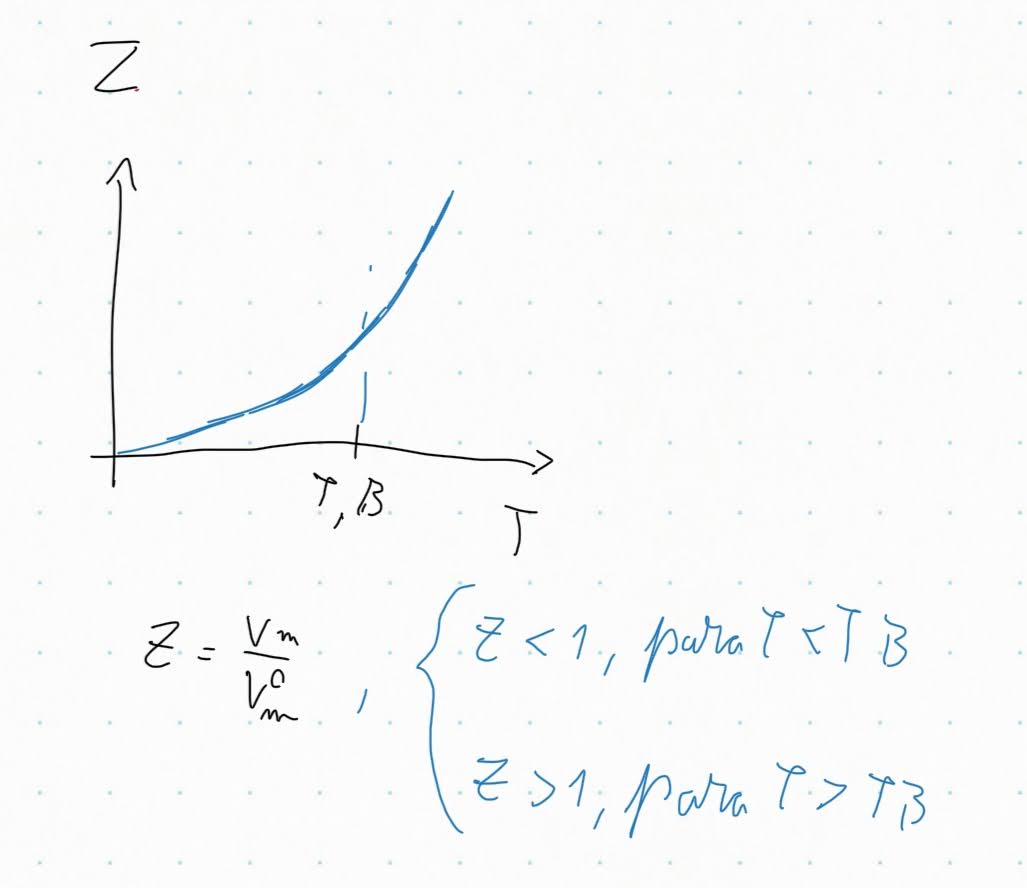 Z
T, B
T
Z = Vm / V°m , { Z < 1, para T < T B
Z > 1, para T > T B